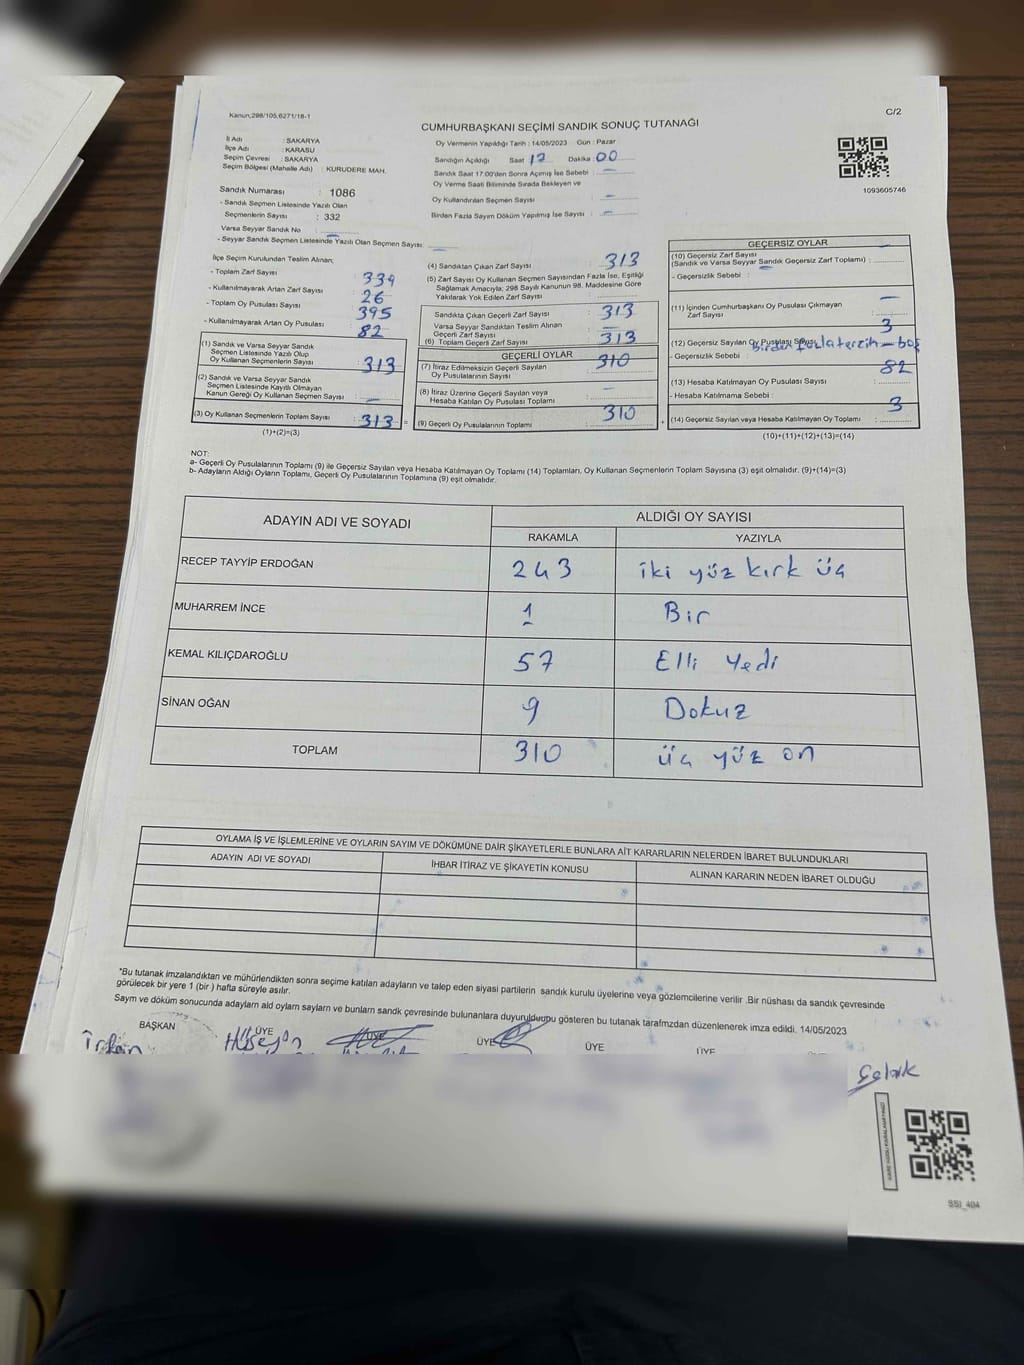 Kanun,298/105,6271/18-1
C/2
CUMHURBAŞKANI SEÇİMİ SANDIK SONUÇ TUTANAĞI
İl Adı : SAKARYA
İlçe Adı : KARASU
Seçim Çevresi : SAKARYA
Seçim Bölgesi (Mahalle Adı) : KURUDERE MAH.
Sandık Numarası : 1086
- Sandık Seçmen Listesinde Yazılı Olan
Seçmenlerin Sayısı : 332
Varsa Seyyar Sandık No :
- Seyyar Sandık Seçmen Listesinde Yazılı Olan Seçmen Sayısı:
Oy Vermenin Yapıldığı Tarih : 14/05/2023 Gün : Pazar
Sandığın Açıldığı Saat 17 Dakika 00
Sandık Saat 17:00'den Sonra Açılmış İse Sebebi : –
Oy Verme Saati Bitiminde Sırada Bekleyen ve
Oy Kullandırılan Seçmen Sayısı : –
Birden Fazla Sayım Döküm Yapılmış İse Sayısı : –
1093605746
İlçe Seçim Kurulundan Teslim Alınan;
- Toplam Zarf Sayısı : 339
- Kullanılmayarak Artan Zarf Sayısı : 26
- Toplam Oy Pusulası Sayısı : 395
- Kullanılmayarak Artan Oy Pusulası : 82
(1) Sandık ve Varsa Seyyar Sandık
Seçmen Listesinde Yazılı Olup
Oy Kullanan Seçmenlerin Sayısı : 313
(2) Sandık ve Varsa Seyyar Sandık
Seçmen Listesinde Kayıtlı Olmayan
Kanun Gereği Oy Kullanan Seçmen Sayısı : –
(3) Oy Kullanan Seçmenlerin Toplam Sayısı : 313
(1)+(2)=(3)
(4) Sandıktan Çıkan Zarf Sayısı : 313
(5) Zarf Sayısı Oy Kullanan Seçmen Sayısından Fazla İse, Eşitliği
Sağlamak Amacıyla; 298 Sayılı Kanunun 98. Maddesine Göre
Yakılarak Yok Edilen Zarf Sayısı :
Sandıkta Çıkan Geçerli Zarf Sayısı : 313
Varsa Seyyar Sandıktan Teslim Alınan
Geçerli Zarf Sayısı : –
(6) Toplam Geçerli Zarf Sayısı : 313
GEÇERLİ OYLAR
(7) İtiraz Edilmeksizin Geçerli Sayılan
Oy Pusulalarının Sayısı : 310
(8) İtiraz Üzerine Geçerli Sayılan veya
Hesaba Katılan Oy Pusulası Toplamı : –
(9) Geçerli Oy Pusulalarının Toplamı : 310
GEÇERSİZ OYLAR
(10) Geçersiz Zarf Sayısı
(Sandık ve Varsa Seyyar Sandık Geçersiz Zarf Toplamı) : –
- Geçersizlik Sebebi : –
(11) İçinden Cumhurbaşkanı Oy Pusulası Çıkmayan
Zarf Sayısı : –
(12) Geçersiz Sayılan Oy Pusulası Sayısı : 3
- Geçersizlik Sebebi : Birden fazla tercih – boş
(13) Hesaba Katılmayan Oy Pusulası Sayısı : 82
- Hesaba Katılmama Sebebi :
(14) Geçersiz Sayılan veya Hesaba Katılmayan Oy Toplamı : 3
(10)+(11)+(12)+(13)=(14)
NOT:
a- Geçerli Oy Pusulalarının Toplamı (9) ile Geçersiz Sayılan veya Hesaba Katılmayan Oy Toplamı (14) Toplamları, Oy Kullanan Seçmenlerin Toplam Sayısına (3) eşit olmalıdır. (9)+(14)=(3)
b- Adayların Aldığı Oyların Toplamı, Geçerli Oy Pusulalarının Toplamına (9) eşit olmalıdır.
ADAYIN ADI VE SOYADI ALDIĞI OY SAYISI
RAKAMLA YAZIYLA
RECEP TAYYİP ERDOĞAN 243 iki yüz kırk üç
MUHARREM İNCE 1 Bir
KEMAL KILIÇDAROĞLU 57 Elli Yedi
SİNAN OĞAN 9 Dokuz
TOPLAM 310 üç yüz on
OYLAMA İŞ VE İŞLEMLERİNE VE OYLARIN SAYIM VE DÖKÜMÜNE DAİR ŞİKAYETLERLE BUNLARA AİT KARARLARIN NELERDEN İBARET BULUNDUKLARI
ADAYIN ADI VE SOYADI İHBAR İTİRAZ VE ŞİKAYETİN KONUSU ALINAN KARARIN NEDEN İBARET OLDUĞU
*Bu tutanak imzalandıktan ve mühürlendikten sonra seçime katılan adayların ve talep eden siyasi partilerin sandık kurulu üyelerine veya gözlemcilerine verilir .Bir nüshası da sandık çevresinde
görülecek bir yere 1 (bir ) hafta süreyle asılır.
Sayım ve döküm sonucunda adayların ald oyların sayların ve bunların sandk çevresinde bulunanlara duyurulduunu gösteren bu tutanak tarafmzdan düzenlenerek imza edildi. 14/05/2023
BAŞKAN ÜYE ÜYE ÜYE ÜYE ÜYE
İrfan Hüseyin
Çolak
SSI_404